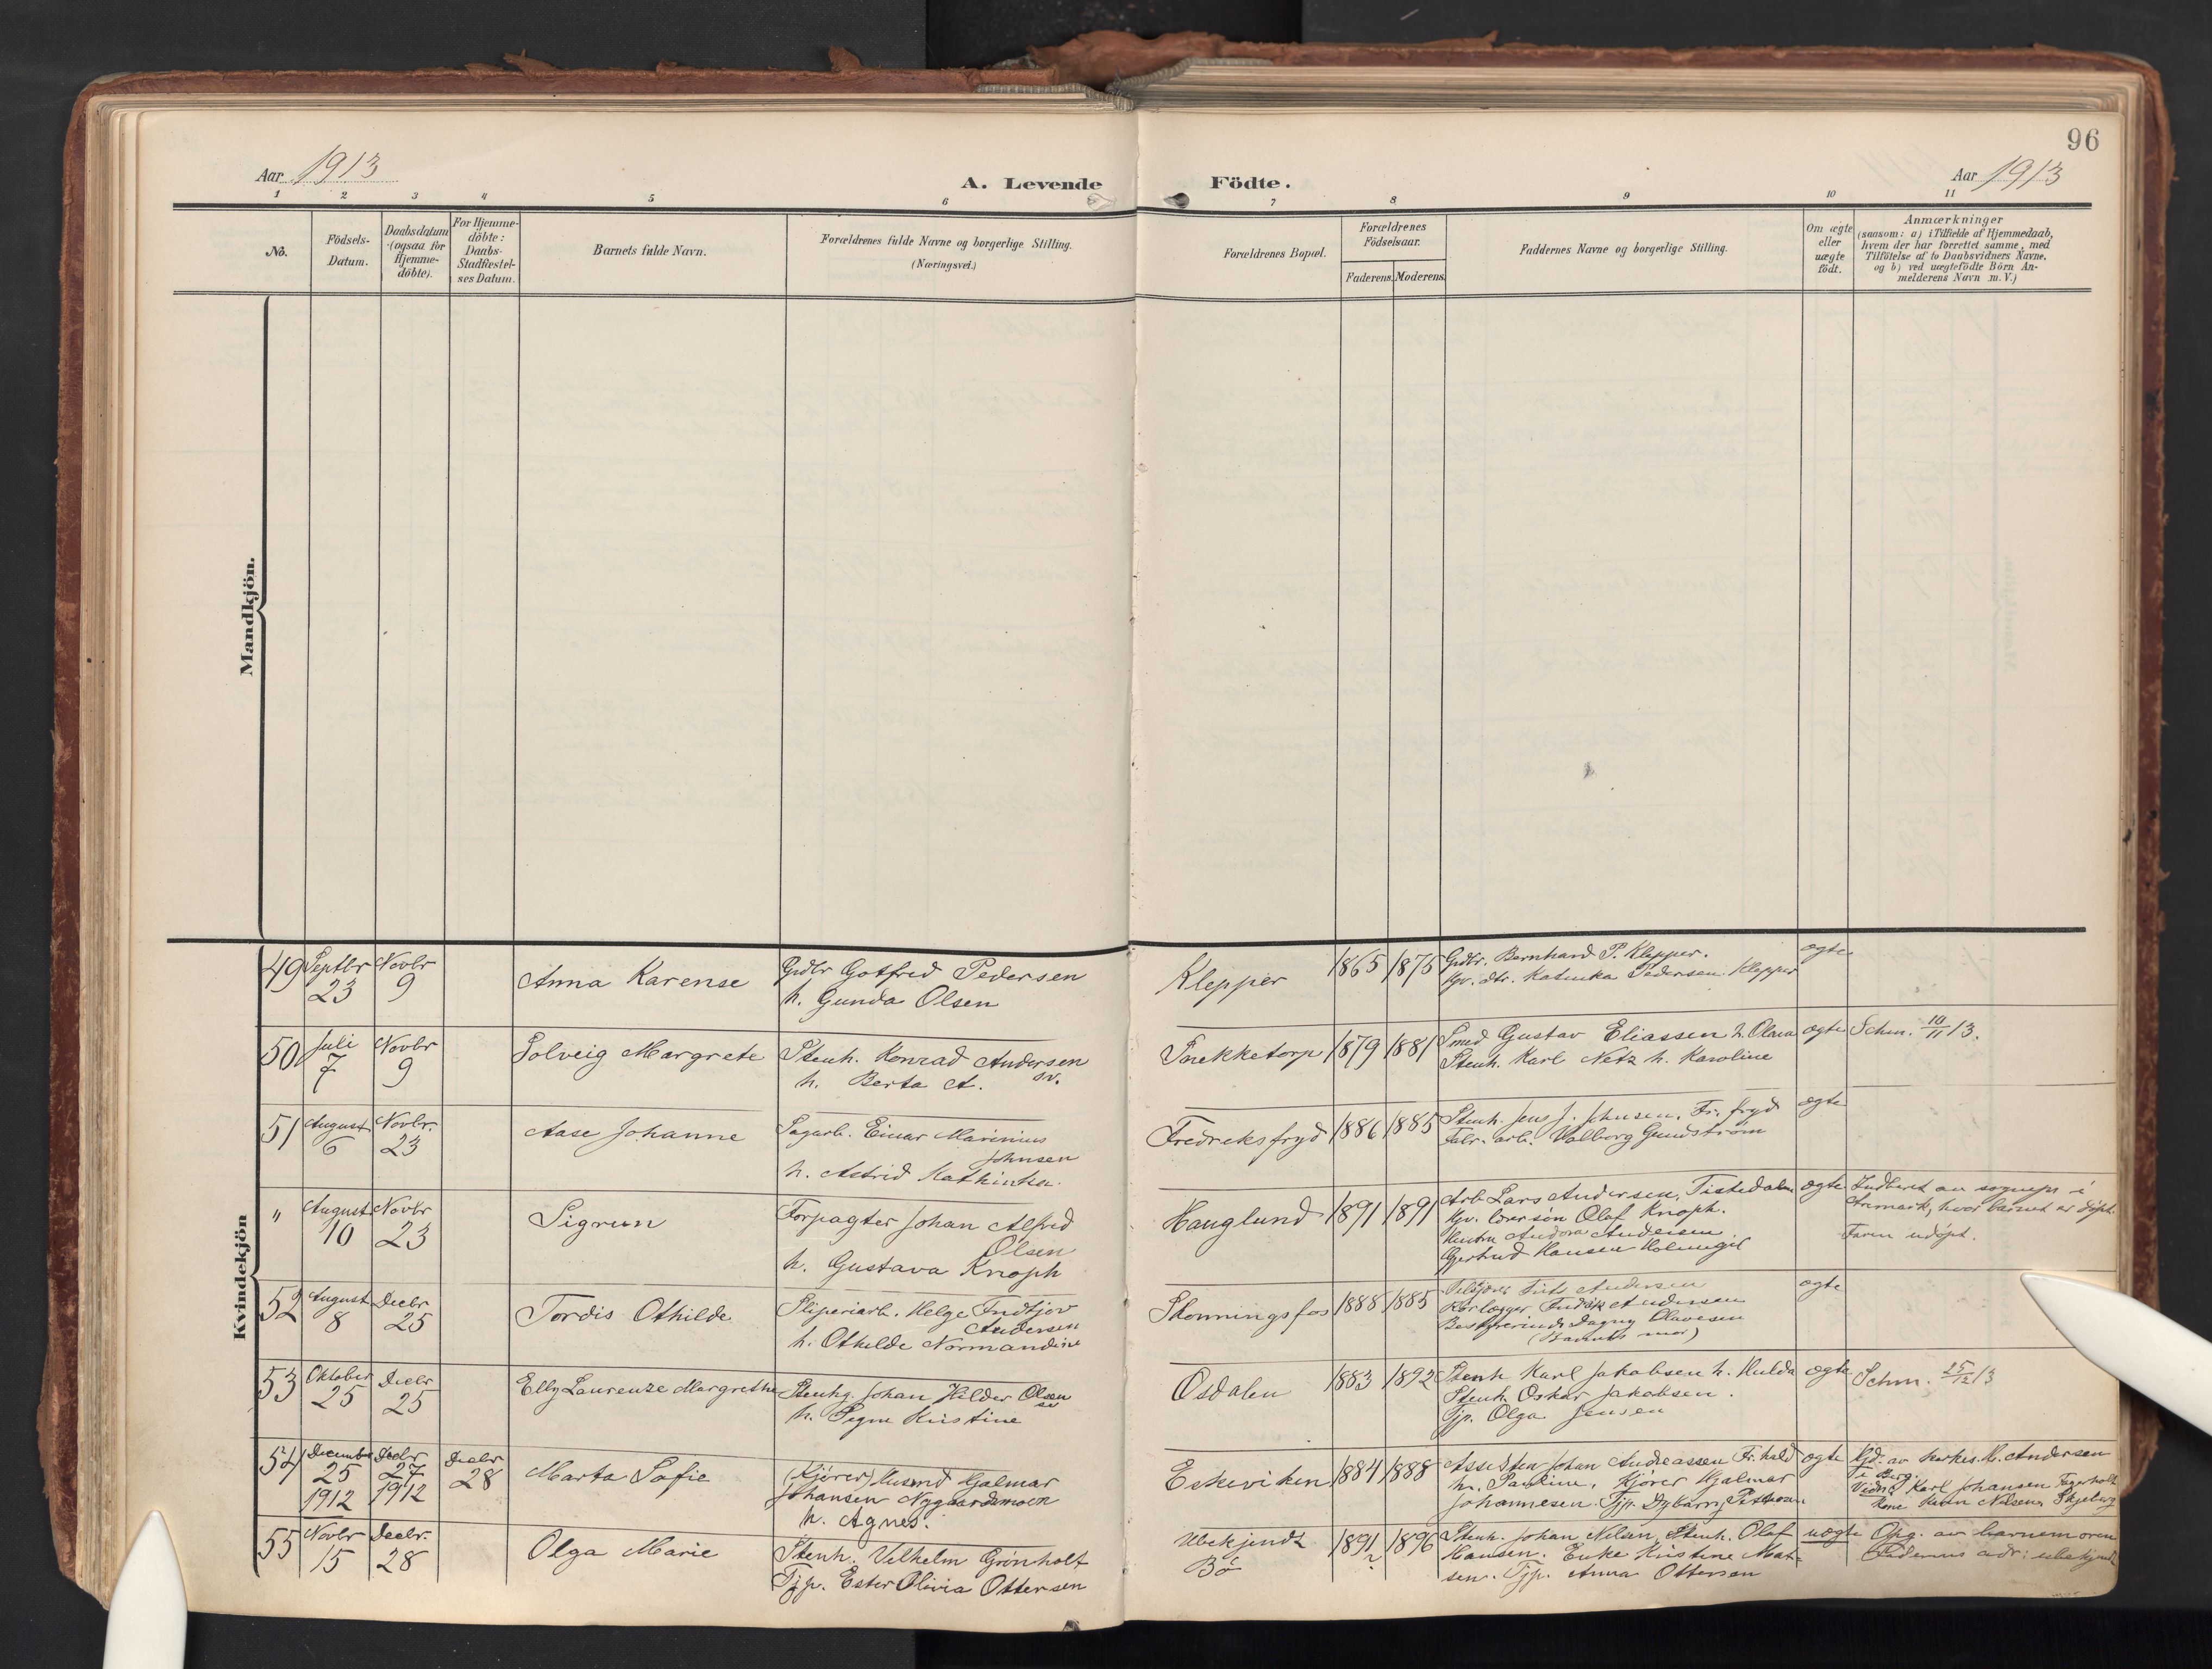 96
Aar 1913
A. Levende Födte.
Aar 1913
1 2 3 4 5 6 7 8 9 10 11
No.
Födsels-
Datum.
Daabsdatum
(ogsaa for
Hjemme-
döbte).
For Hjemme-
döbte:
Daabs-
Stadfæstel-
ses Datum.
Barnets fulde Navn.
Forældrenes fulde Navne og borgerlige Stilling.
(Næringsvei.)
Forældrenes Bopæl.
Forældrenes
Födselsaar.
Faderens. Moderens.
Faddernes Navne og borgerlige Stilling.
Om ægte
eller
uægte
födt.
Anmærkninger
(saasom: a) i Tilfælde af Hjemmedaab,
hvem der har forrettet samme, med
Tilföielse af to Daabsvidners Navne,
og b) ved uægtefödte Börn An-
melderens Navn m. V.)
Mandkjön.
Kvindekjön
49 Septbr 23 Novbr 9
Anna Karense
Grdbr Gotfred Pedersen
h. Gunda Olsen
Klepper
1865 1875
Grdbr. Bernhard P. Klepper.
Gv. dtr. Katinka Pedersen Klepper
ægte
50 Juli 7 Novbr 9
Solveig Margrete
Stenh. Konrad Andersen
sv.
h. Berta A.
Snekketorp
1879 1881
Smed Gustav Eliassen h. Olava
Stenh. Karl Netz h. Karoline
ægte
Schm. 10/11 13.
51 August 6 Novbr. 23
Aase Johanne
Sagarb. Einar Marinius
Johnsen
h. Astrid Kathinka.
Fredreksfryd
1886 1885
Stenh. Jens J. Johnsen, Fr. fryd
Fabr. arb. Valborg Gundstrøm
ægte
" August 10 Novbr 23
Sigrun
Forpagter Johan Alfred
Olsen
h. Gustava Knoph
Hauglund
1891 1891
Arb Lars Andersen, Tistedalen
Olaf Knoph.
Hustru Andora Andersen
Gjertrud Hansen
ægte
Indberet av sognepr i
Aremark, hvor barnet er døpt.
Faren udøpt.
52 August 8 Decbr 25
Tordis Othilde
Sliperiarb. Helge Fridtjov
Andersen
h. Othilde Normandine
Skonningsfos
1888 1885
Andersen
Rørlægger Fredrik Andersen
Bestyrerinde Dagny Olavesen
(Barnets mor)
ægte
53 Oktober 25 Decbr 25
Elly Laurenze Margrethe
Stenhg. Johan Hilder Olsen
sv
h. Signe Kristine
Osdalen
1883 1892
Stenh Karl Jakobsen h. Hulda
Stenh. Oskar Jakobsen.
Tjp. Olga Jensen
ægte
Schm. 25/12 13
54 December 25 1912 Decbr 27 1912 Decbr 28
Marta Sofie
(Kjører) Husmd Hjalmar
Johansen Nygaardsmoen
h. Agnes.
Eskeviken
1884 1888
Johan Andreassen Fr. hald
h. Pauline, Kjører Hjalmar
Johannesen. Tjp. Dybarnj
ægte
Hjd. av M. Andersen
i Berg.
Vidn: Karl Johansen Fagerholt
Kone Nilsen, Skjeberg
55 Novbr 15 Decbr. 28
Olga Marie
Stenh. Velhelm Grønholt
Tjp. Ester Olivia Ottersen
Ubekjendt
Bø
1891 ? 1896
Stenh. Johan Nilsen, Stenh. Olaf
Hansen. Enke Kristine Mat-
sen. Tjp. Anna Ottersen
uægte
Opg. av barnemoren
Faderens adr: ubekjendt